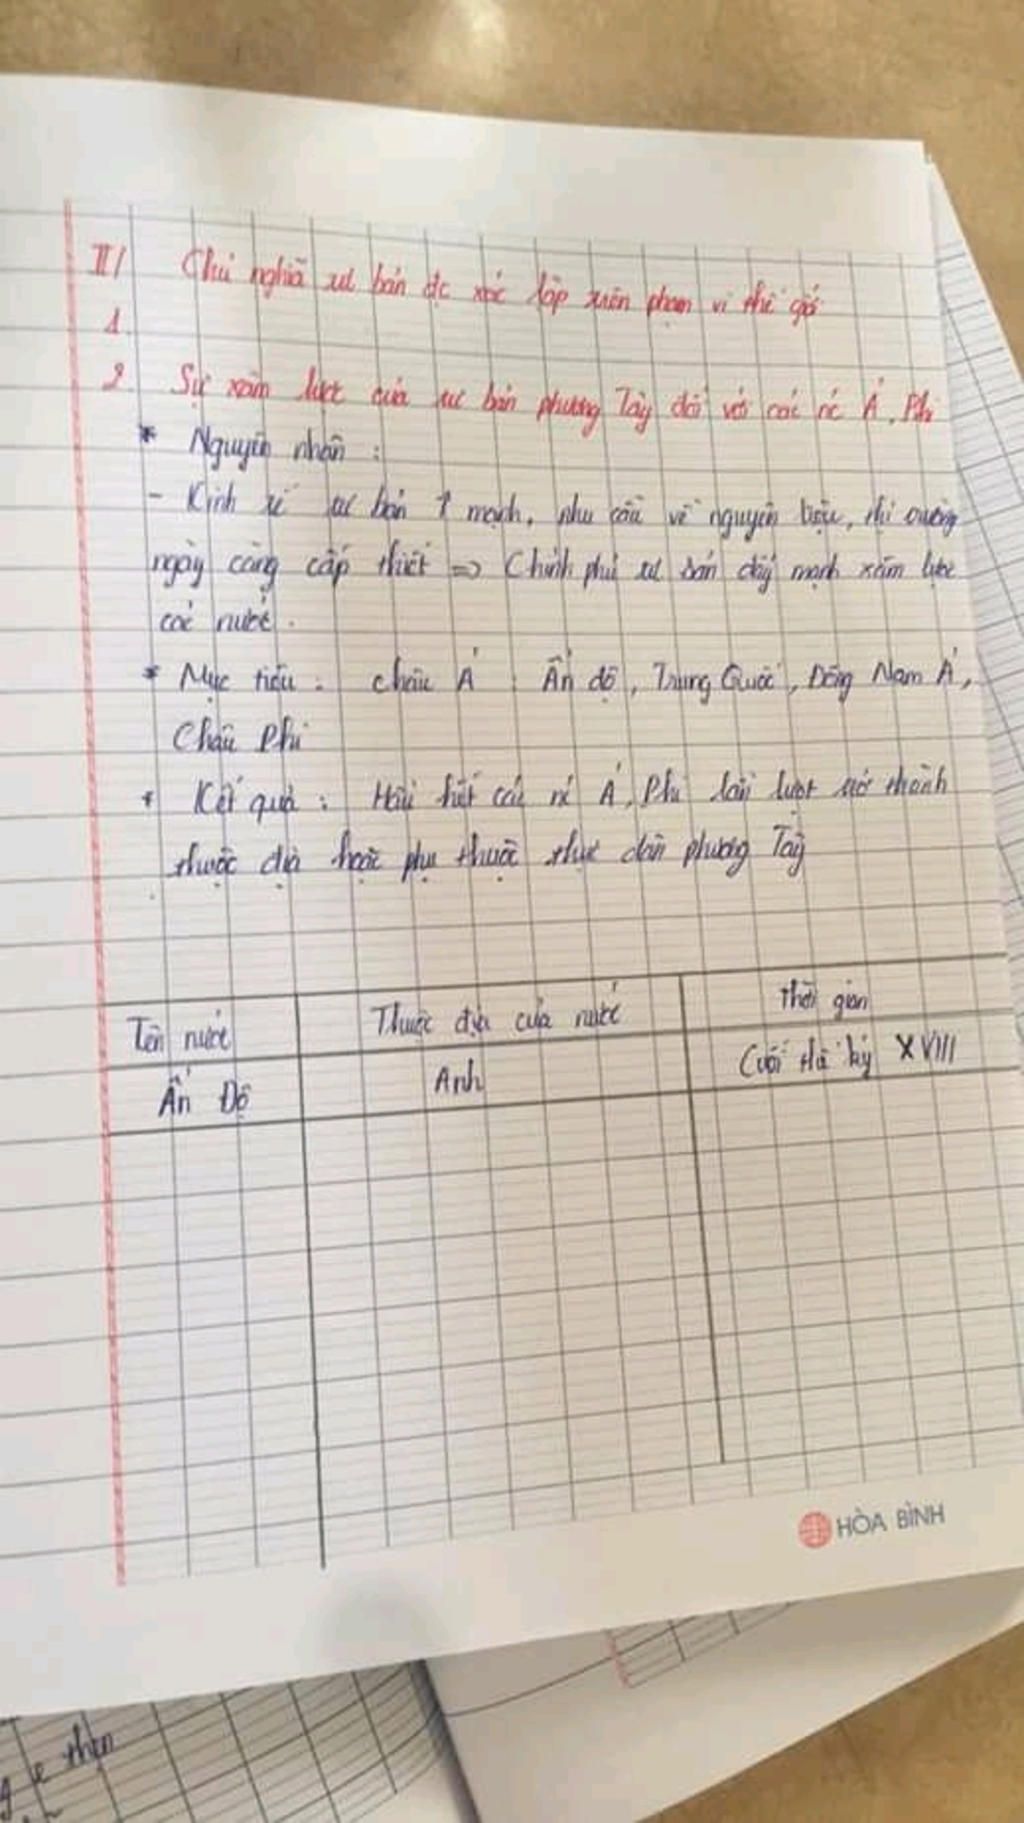 II/ Chủ nghĩa tư bản đc xác lập trên phạm vi thế giới
1.
2 Sự xâm lược của tư bản phương Tây đối với các nc Á, Phi
* Nguyên nhân :
- Kinh tế tư bản ↑ mạnh, nhu cầu về nguyên liệu, thị trường
ngày càng cấp thiết => Chính phủ tư bản đẩy mạnh xâm lược
các nước.
* Mục tiêu : châu Á : Ấn độ, Trung Quốc, Đông Nam Á,
Châu Phi
* Kết quả : Hầu hết các nc Á, Phi lần lượt trở thành
thuộc địa hoặc phụ thuộc thực dân phương Tây
Tên nước Thuộc địa của nước Thời gian
Ấn Độ Anh Cuối thế kỷ XVIII
HÒA BÌNH